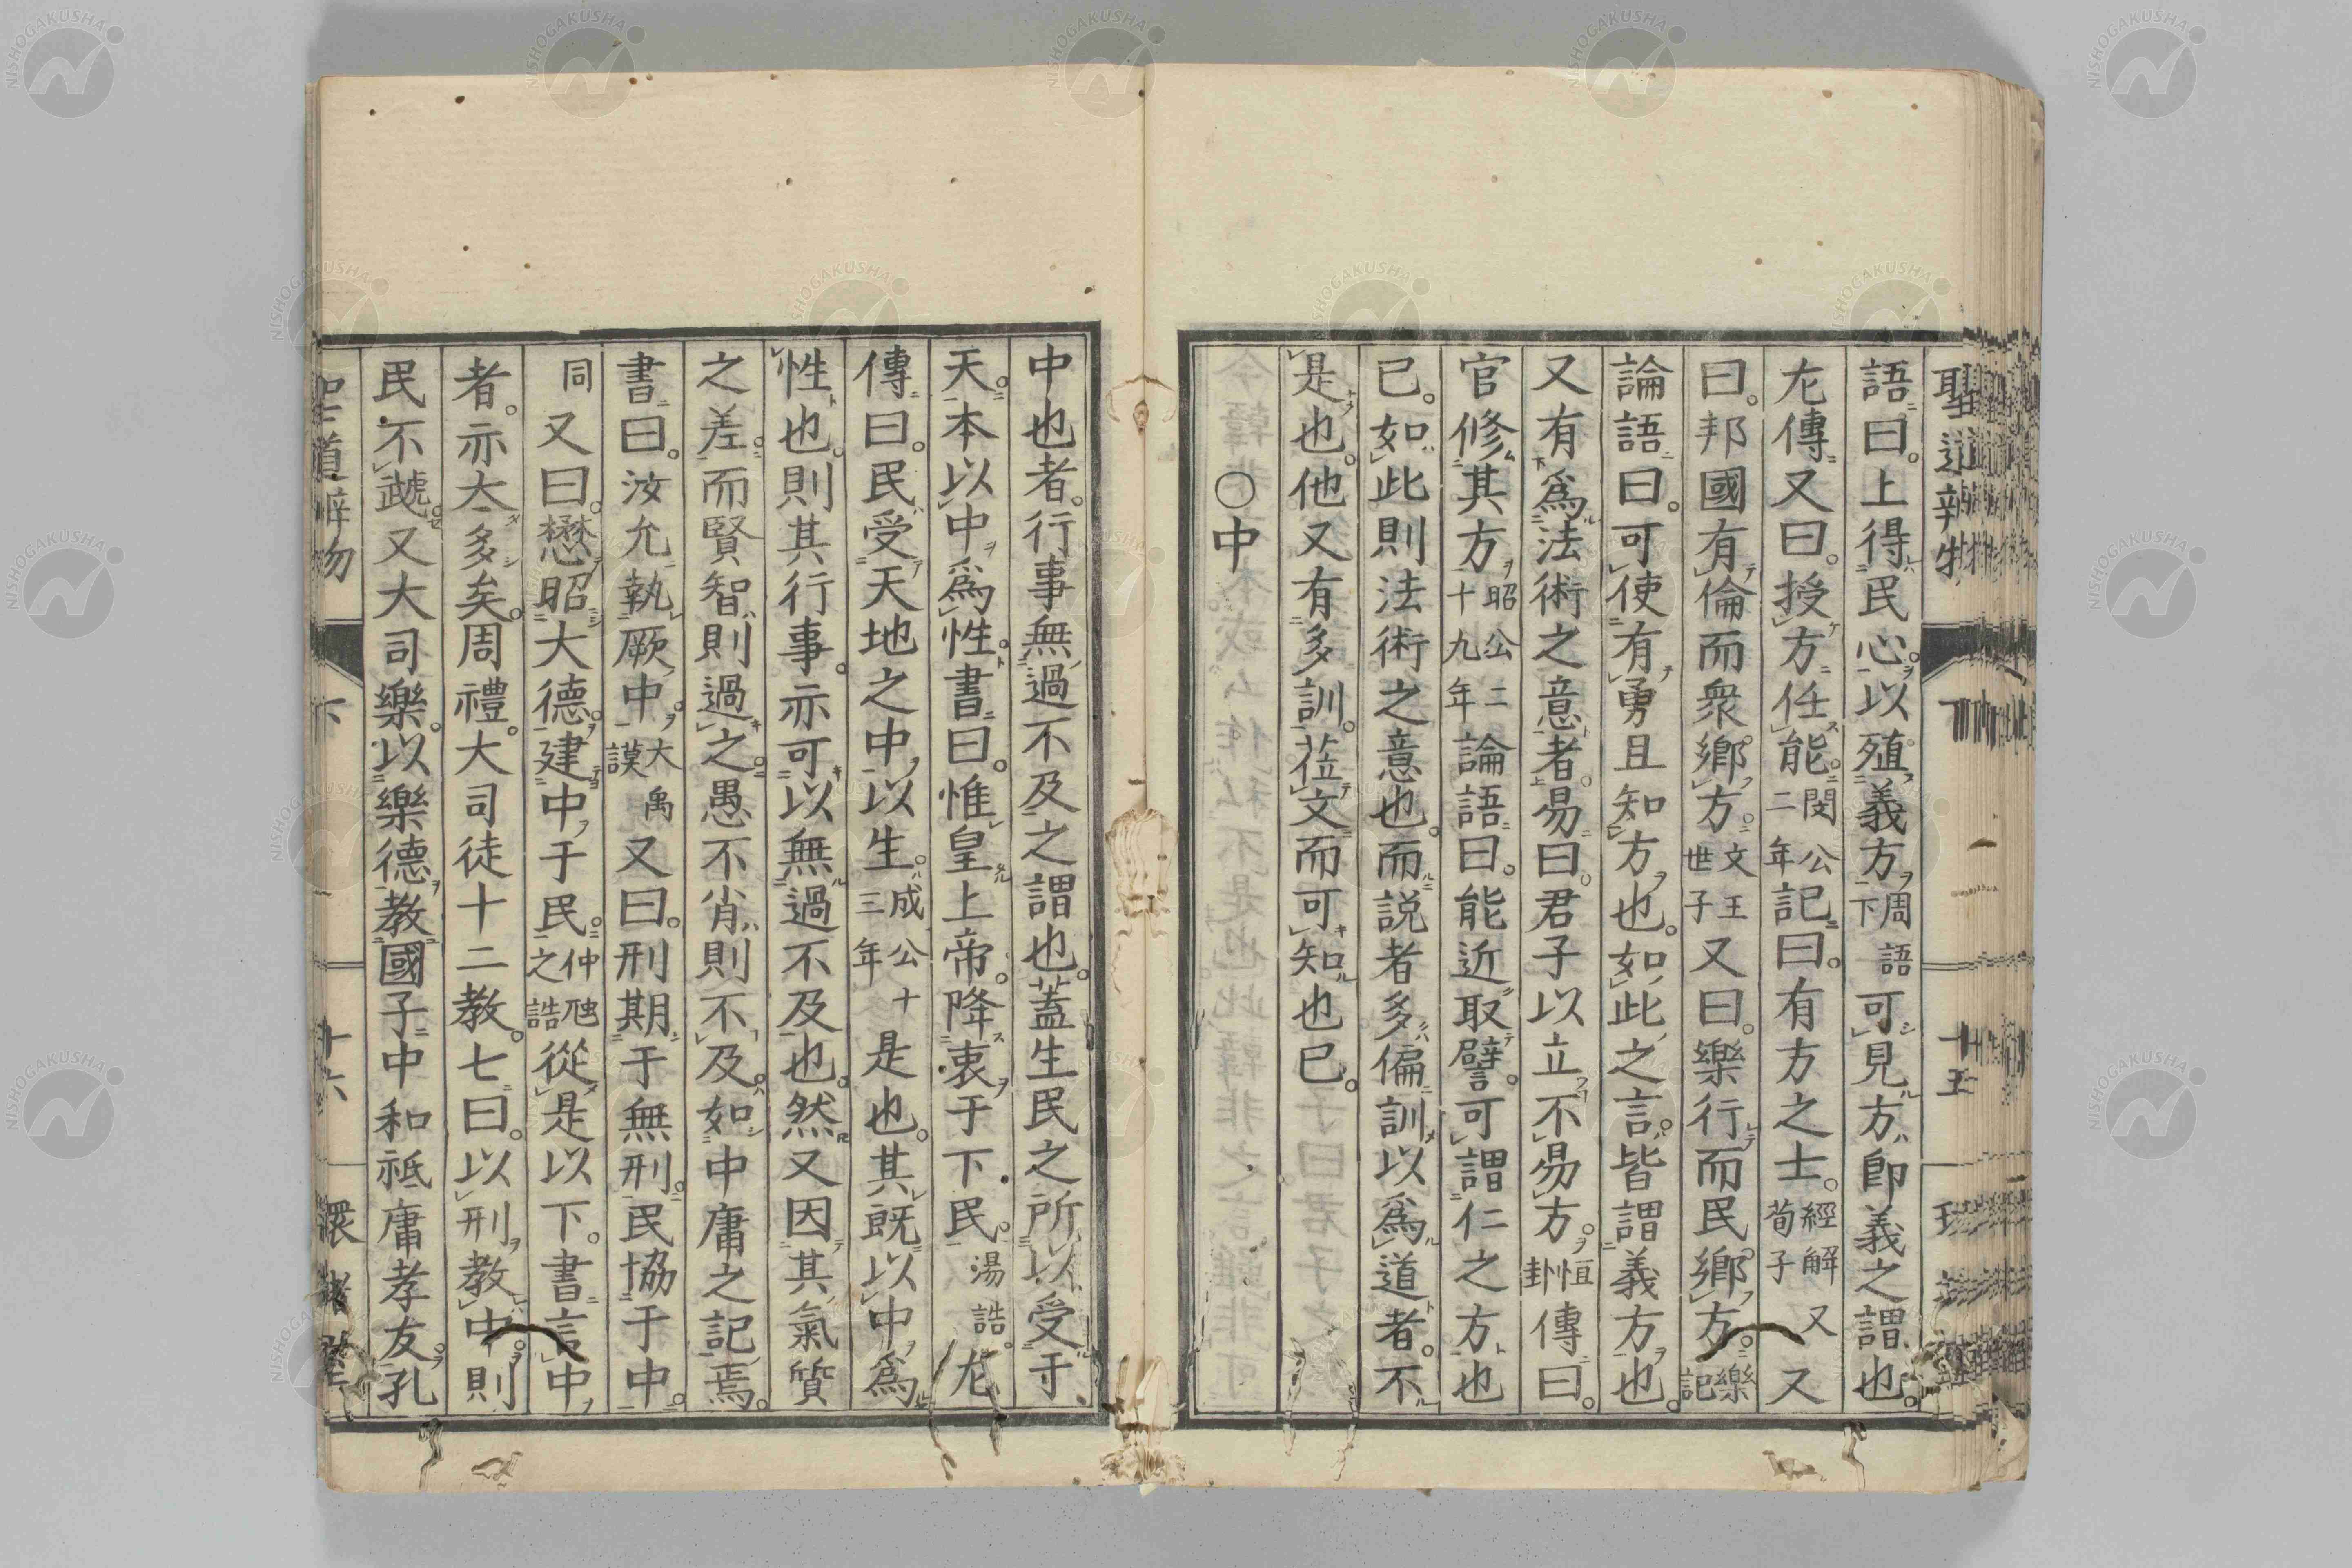 語曰。上得民心。以殖義方周語下可見方即義之謂也。
左傳又曰。授方任能。閔公二年記曰。有方之士。經解荀子又又
曰。邦國有倫而衆鄉方。文王世子又曰。樂行而民鄉方。樂記
論語曰。可使有勇且知方也。如此之言。皆謂義方也。
又有爲法術之意者。易曰。君子以立不易方。恒卦傳曰。
官修其方昭公二十九年論語曰。能近取譬。可謂仁之方也
已。如此則法術之意也。而説者多偏訓以爲道者。不
是也。他又有多訓。莅文而可知也已。
○中
中也者。行事無過不及之謂也。蓋生民之所以受于
天。本以中爲性。書曰。惟皇上帝。降衷于下民。湯誥。左
傳曰。民受天地之中以生。成公十三年是也。其既以中爲
性也。則其行事。亦可以無過不及也。然又因其氣質
之差。而賢智則過之。愚不肖則不及。如中庸之記焉。
書曰。汝允執厥中。大禹謨又曰。刑期于無刑。民協于中。
同又曰。懋昭大德。建中于民。仲虺之誥從是以下。書言中
者。亦太多矣。周禮。大司徒十二教。七曰。以刑教中。則
民不虣。又大司樂。以樂德教國子。中和祗庸孝友。孔
聖道辨物
下
十五
聖道辨物
下
十六